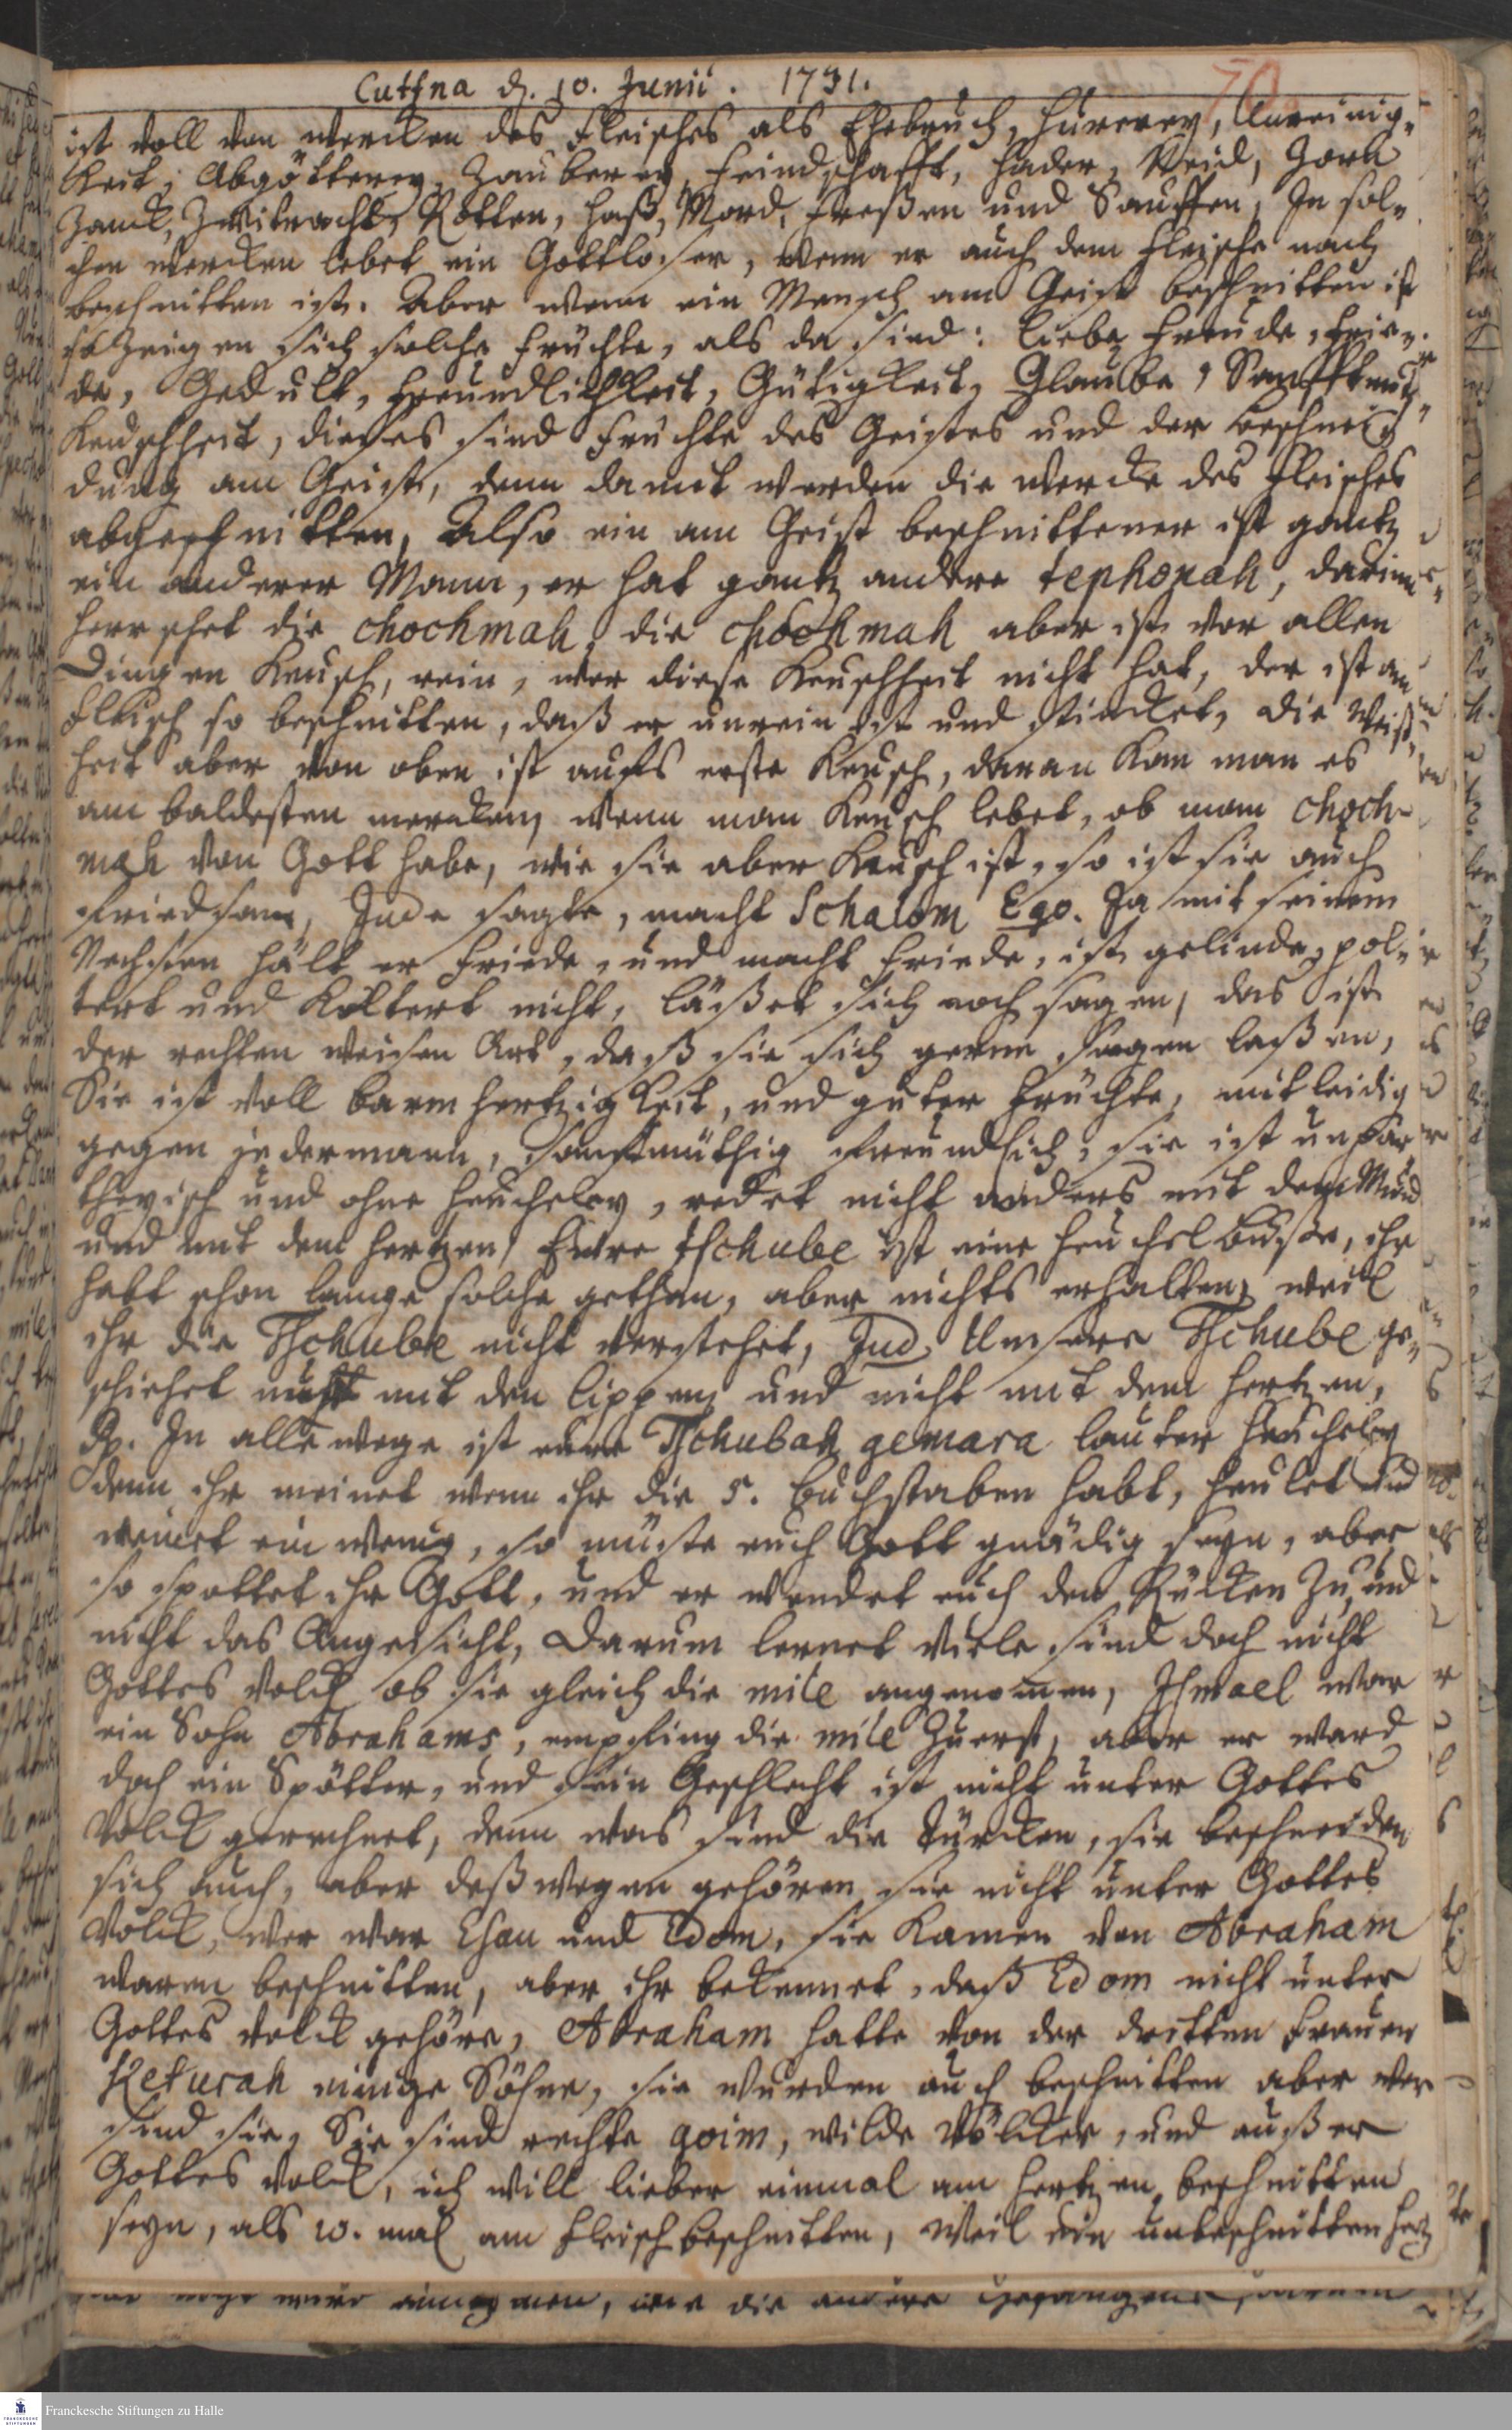 Cuttna d. 10. Junii. 1731.
70.
ist voll von Wercken des Fleisches als Ehebruch, Hurerey, Unreinig-
keit, Abgötterey, Zauberey, Feindschafft, Hader, Neid, Zorn
Zanck, Zwitracht, Rotten, Haß, Mord, Freßen und Sauffen, In sol-
chen Wercken lebet ein Gottloser, wenn er auch dem Fleische nach
beschnitten ist. Aber wenn ein Mensch am Geist beschnitten ist
so zeigen sich solche Früchte, als da sind: Liebe, Freude, Frie-
de, Gedult, Freundlichkeit, Gütigkeit, Glaube, Sanfftmuth
Keuschheit, dieses sind Früchte des Geistes und der Beschnei-
dung am Geist, denn damit werden die Wercke des Fleisches
abgeschnitten, Also ein am Geist beschnittener ist gantz
ein anderer Mann, er hat gantz andere tephorah, darinne
herrschet die chochmah, die chochmah aber ist vor allen
Dingen keusch, rein, wer diese Keuschheit nicht hat, der ist am
Fleisch so beschnitten, daß er unrein ist und stincket, die Weiß-
heit aber von oben ist aufs erste keusch, daran kan man es
am baldesten mercken, wenn man keusch lebet, ob man choch-
mah von Gott habe, wie sie aber keusch ist, so ist sie auch
friedsam, Jude sagte, macht Schalom Ego. Ja mit seinem
Nechsten hält er Friede, und macht Friede, ist gelinde, pol-
tert und koltert nicht, läßet sich noch sagen, das ist
der rechten weisen Art, daß sie sich gerne sagen laßen,
Sie ist voll Barmhertzigkeit, und guter Früchte, mitleidig
gegen jedermann, sanftmüthig freundlich, sie ist unpar-
theyisch und ohne Heucheley, redet nicht anders mit dem Mund
und mit dem Hertzen, Eure tschube ist eine Heuchelbuße, ihr
habt schon lange solche gethan, aber nichts erhalten, weil
ihr die Tschube nicht verstehet, Jud. Unsere Tschube ge-
schiehet mit den Lippen, und nicht mit dem Hertzen,
Rp. In alle wege ist eure Tschubah gemara lauter Heucheley
denn ihr meinet wenn ihr die 5. Buchstaben habt, heulet und
weinet ein wenig, so müste euch Gott gnädig seyn, aber
so spottet ihr Gott, und er wendet euch den Rücken zu, und
nicht das Angesicht, Darum lernet viele sind doch nicht
Gottes Volck ob sie gleich die mile angenommen, Ismael war
ein Sohn Abrahams, empfing die mile zuerst, aber er ward
doch ein Spötter, und sein Geschlecht ist nicht unter Gottes
Volck gerechnet, denn was sind die Türcken, sie beschneiden
sich auch, aber deßwegen gehören sie nicht unter Gottes
Volck, wer war Esau und Edom, sie kamen von Abraham
waren beschnitten, aber ihr bekennet, daß Edom nicht unter
Gottes Volck gehöre, Abraham hatte von der dritten Frauen
Keturah einige Söhne, sie wurden auch beschnitten aber wer
sind sie, Sie sind rechte goim, wilde Völcker, und außer
Gottes Volck, ich will lieber einmal am Hertzen beschnitten
seyn, als 10. mal am Fleisch beschnitten, weil ein unbeschnitten Hertz
Franckesche Stiftungen zu Halle